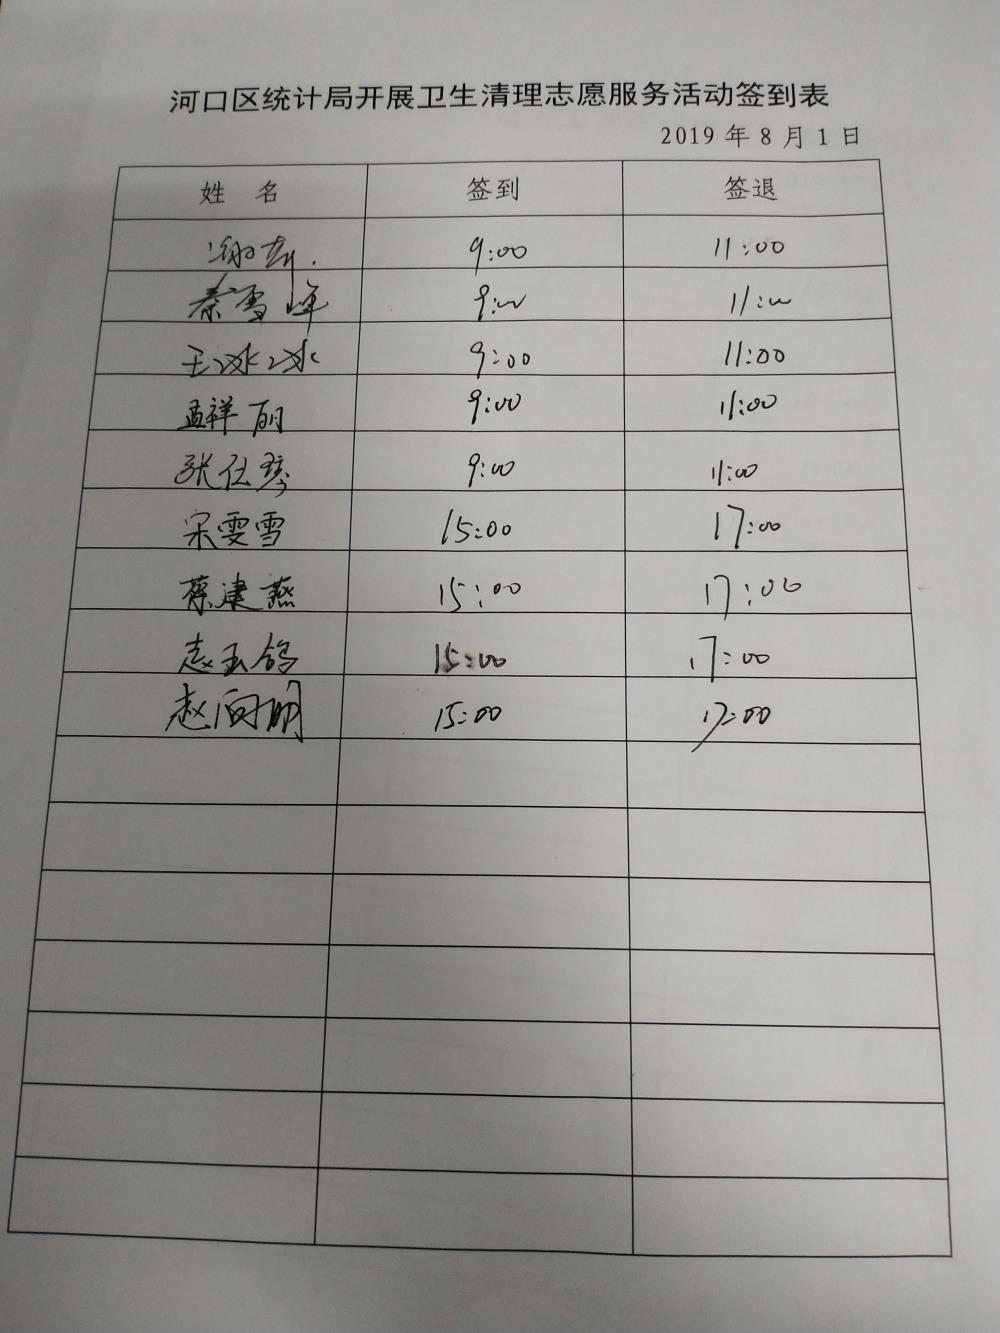 河口区统计局开展卫生清理志愿服务活动签到表
2019 年 8 月 1 日
姓 名 签到 签退
9:00 11:00
秦雪峰 9:00 11:00
王冰冰 9:00 11:00
孟祥丽 9:00 11:00
张仕琴 9:00 11:00
宋雯雪 15:00 17:00
蔡建燕 15:00 17:00
玉鸽 15:00 17:00
赵向明 15:00 17:00